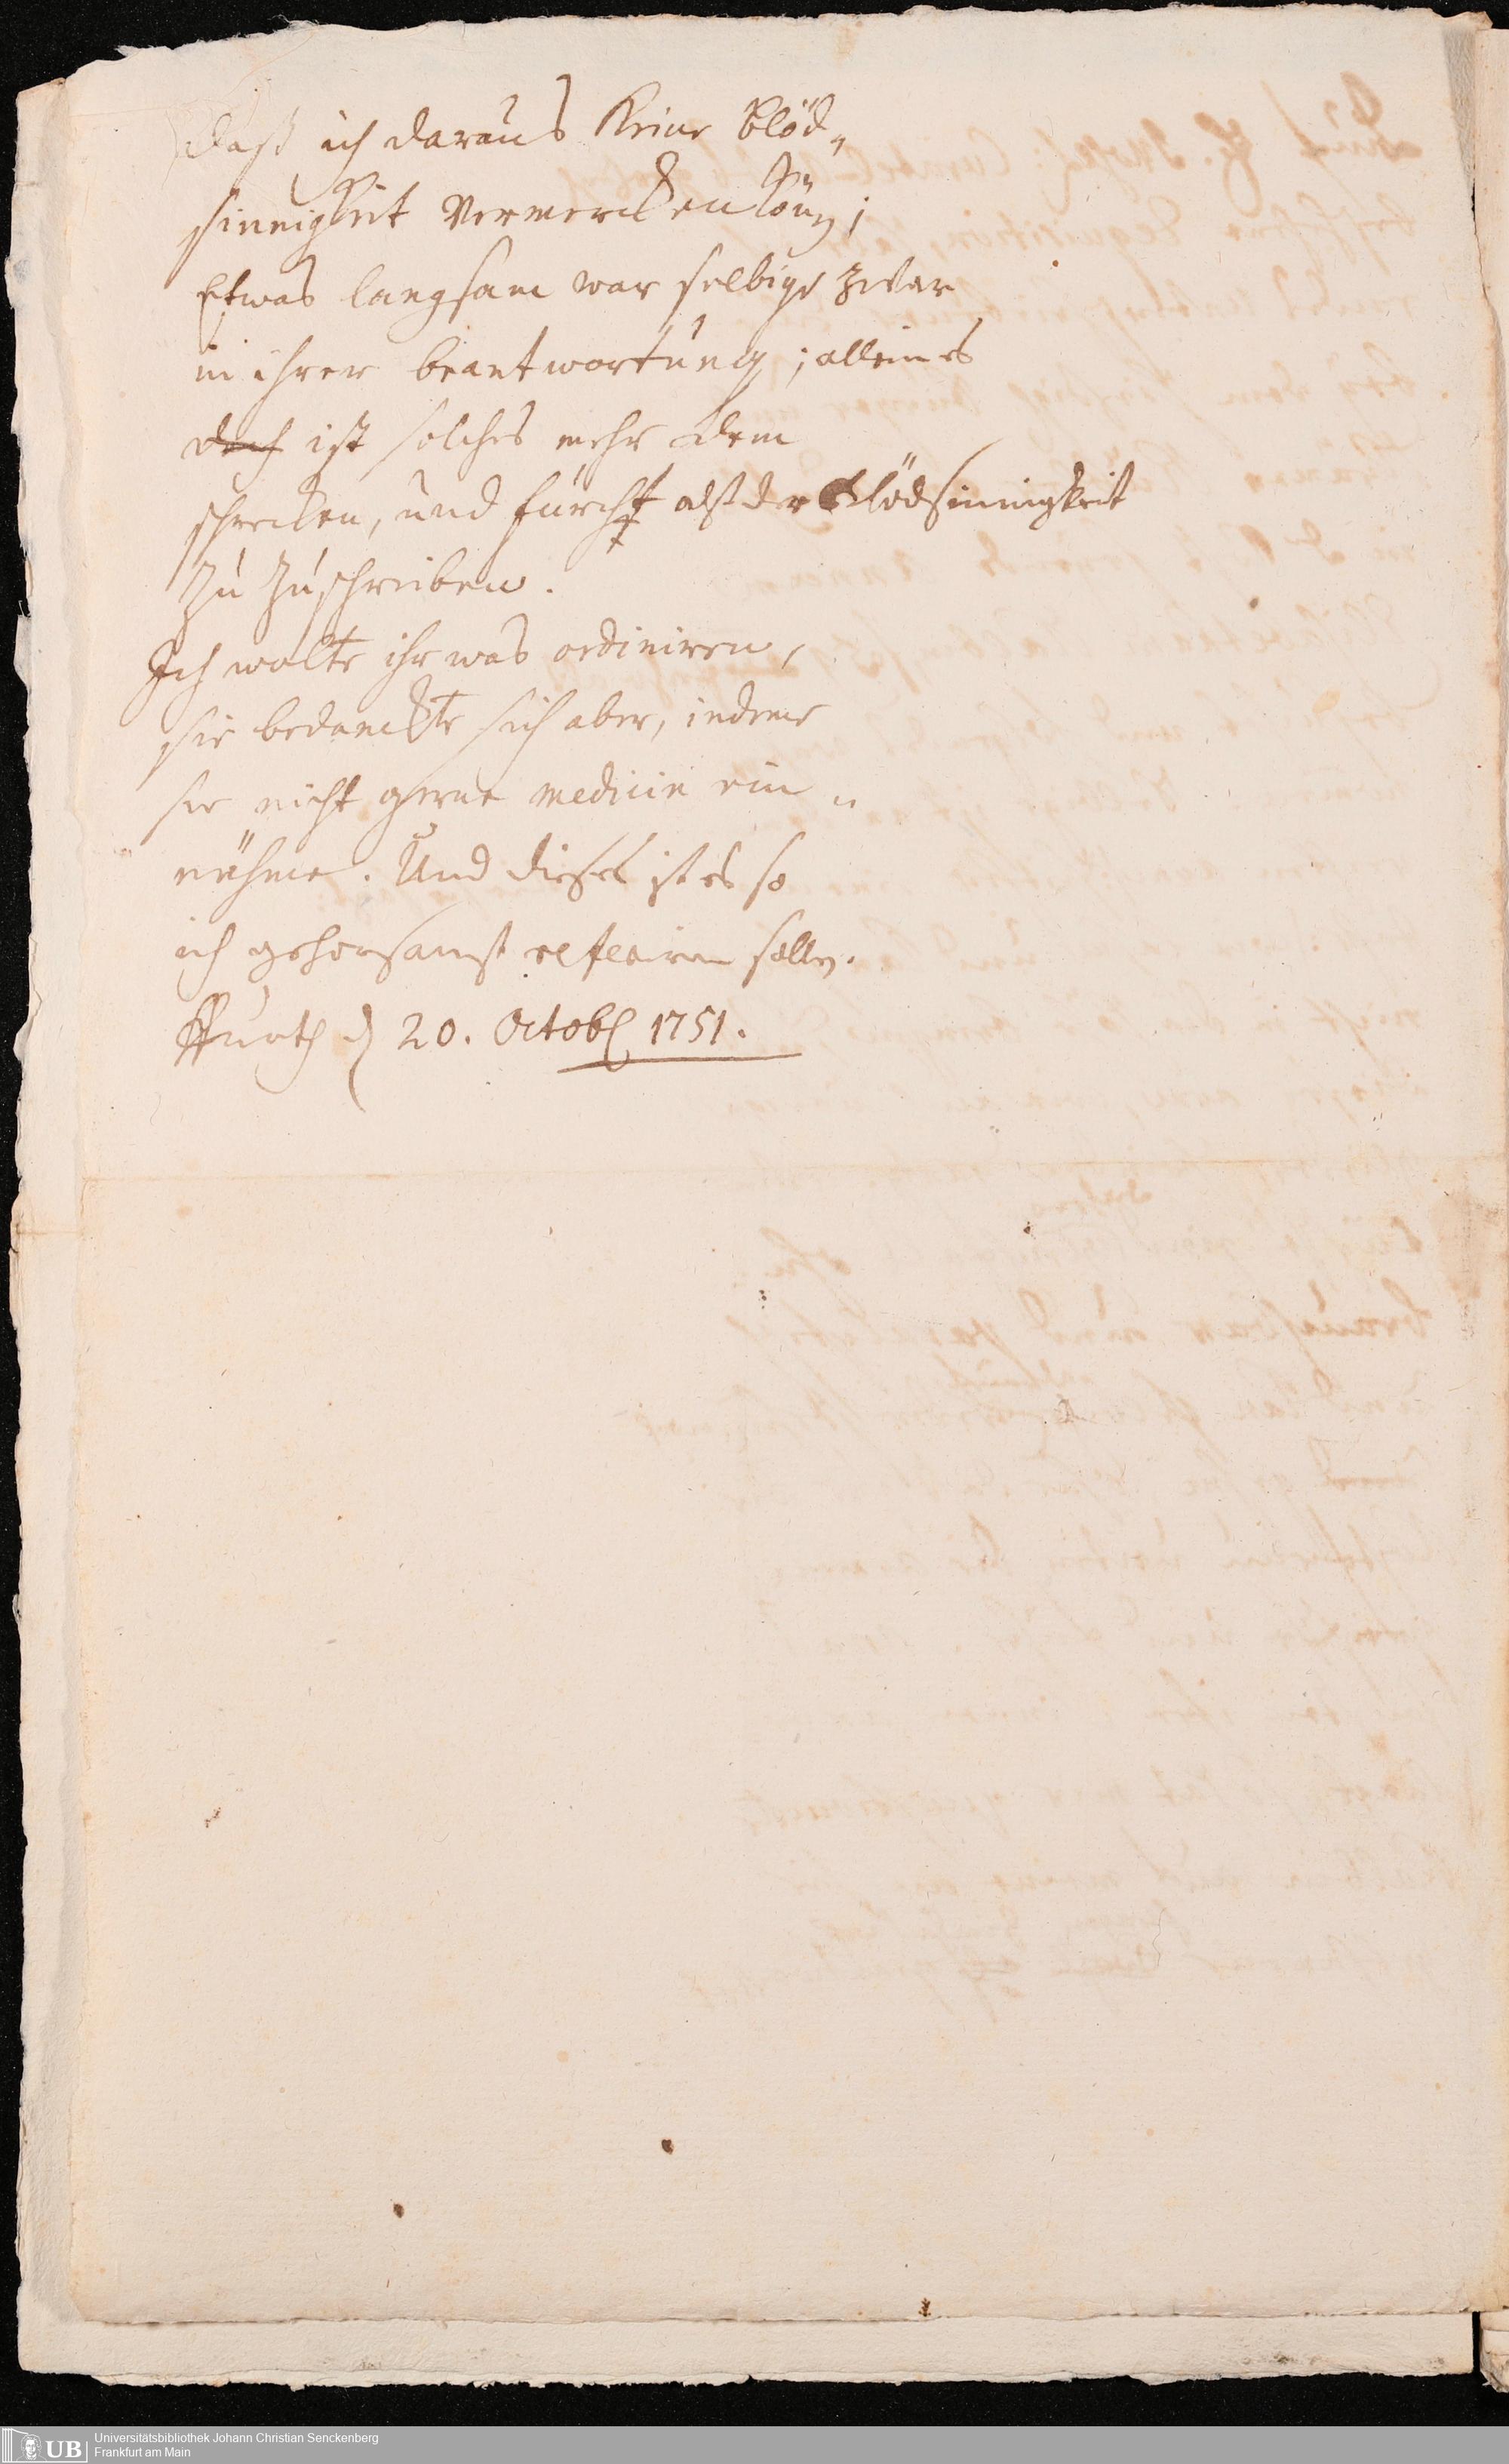 daß ich daraus Keine blöd„
sinnigkeit vermercken könn;
Etwas langsam war selbige zwar
in ihrer beantwortung; allein es
doch ist solches mehr dem
schrecken, und furcht alß der Blödsinnigkeit
zu zuschreiben.
Ich wolte ihr was ordiniren,
sie bedanckte sich aber, indeme
sie nicht gerne medicin ein„
nähme. Und dieses ist es so
ich gehorsamst referiren sollen.
Ffurth d 20. Octobr 1751.
UB
Universitätsbibliothek Johann Christian Senckenberg
Frankfurt am Main